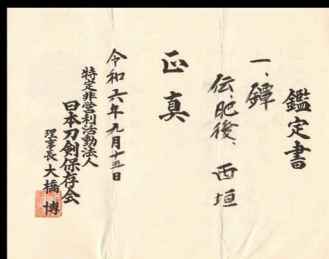 鑑定書
一、鐔
伝、肥後、西垣
正真
令和六年九月十五日
特定非営利活動法人
日本刀剣保存会
理事長 大橋 博